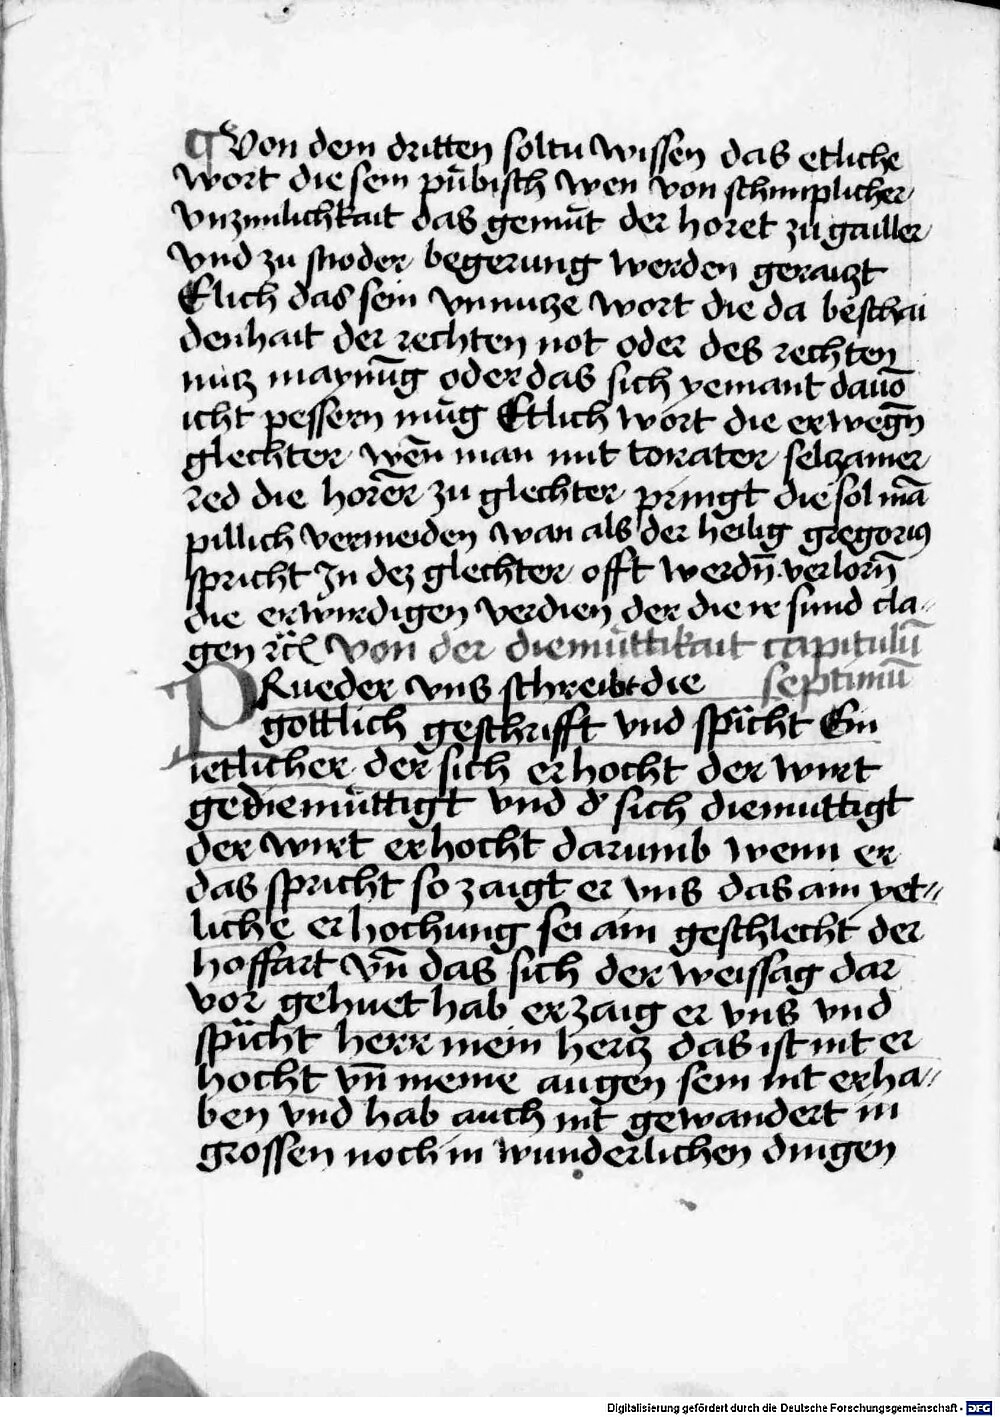 ¶ Von dem dritten soltu wissen das etliche
wort die sein pübisch wen von schimplicher
vnzimlichkait das gemüt der horet zu gailler
vnd zu snoder begerung werden geraitzt
Etlich das sein vnnutze wort die da beschai
denhait der rechten not oder des rechten
nutz maynūg oder das sich yemant dauō
icht pessern müg Etlich wort die erwegn̄
glechter wen̄ man mit torater seltzamer
red die horer̄ zu glechter pringt die sol mā
pillich vermeiden wan als der heilig gregorius
spricht In dez glechter offt werdn̄ verlorn̄
die erwirdigen verdien der die ir sund cla-
gen ꝛc̄ Von der diemüttikait capitulū
septimū
PRueder vns schreibt die
gottlich geschrifft vnd spͥcht Ein
ietlicher der sich erhocht der wirt
gediemüttigt vnd dʼ sich diemuttigt
der wirt erhocht darumb wenn er
das spricht so zaigt er vns das ain yet-
liche erhochung sei ain geschlecht der
hoffart vn̄ das sich der weissag dar
vor gehuet hab erzaig er vns vnd
spͥcht herr mein hertz das ist nit er
hocht vn̄ meine augen sein nit erha-
ben vnd hab auch nit gewandert in
grossen noch in wunderlichen dingen
Digitalisierung gefördert durch die Deutsche Forschungsgemeinschaft - DFG